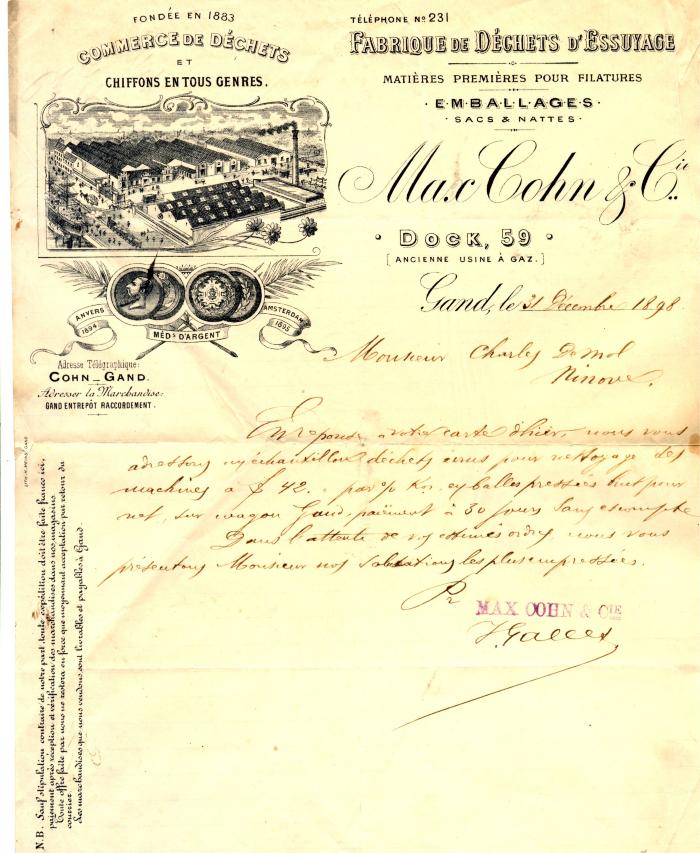 FONDÉE EN 1883
COMMERCE DE DÉCHETS
ET
CHIFFONS EN TOUS GENRES.
TÉLÉPHONE No 231
FABRIQUE DE DÉCHETS D'ESSUYAGE
MATIÈRES PREMIÈRES POUR FILATURES
EMBALLAGES
SACS & NATTES
Max Cohn & Cie
DOCK, 59
[ANCIENNE USINE À GAZ.]
ANVERS 1894
MÉDS D'ARGENT
AMSTERDAM 1895
Adresse Télégraphique:
COHN_GAND.
Adresser la Marchandise:
GAND ENTREPÔT RACCORDEMENT.
Gand, le 31 Décembre 1898
Monsieur Charles De Mol
Ninove.
En reponse a votre carte d'hier, nous vous
adressons échantillon déchets pour nettoyage des
machines à 42. par % Ko. balles pressées brut pour
net, sur wagon Gand, paiement à 30 jours sans escompte
Dans l'attente de vos estimés ordres, nous vous
présentons Monsieur nos Salutations les plus empressées.
Pr MAX COHN & CIE
N.B. Sauf stipulation contraire de notre part toute expédition doit être faite franco ici,
paiement après réception et vérification des marchandises dans nos magasins
Toute offre faite par nous ne restera en force que moyennant acceptation par retour du
courrier.
Les marchandises que nous vendons sont livrables et payables à Gand.